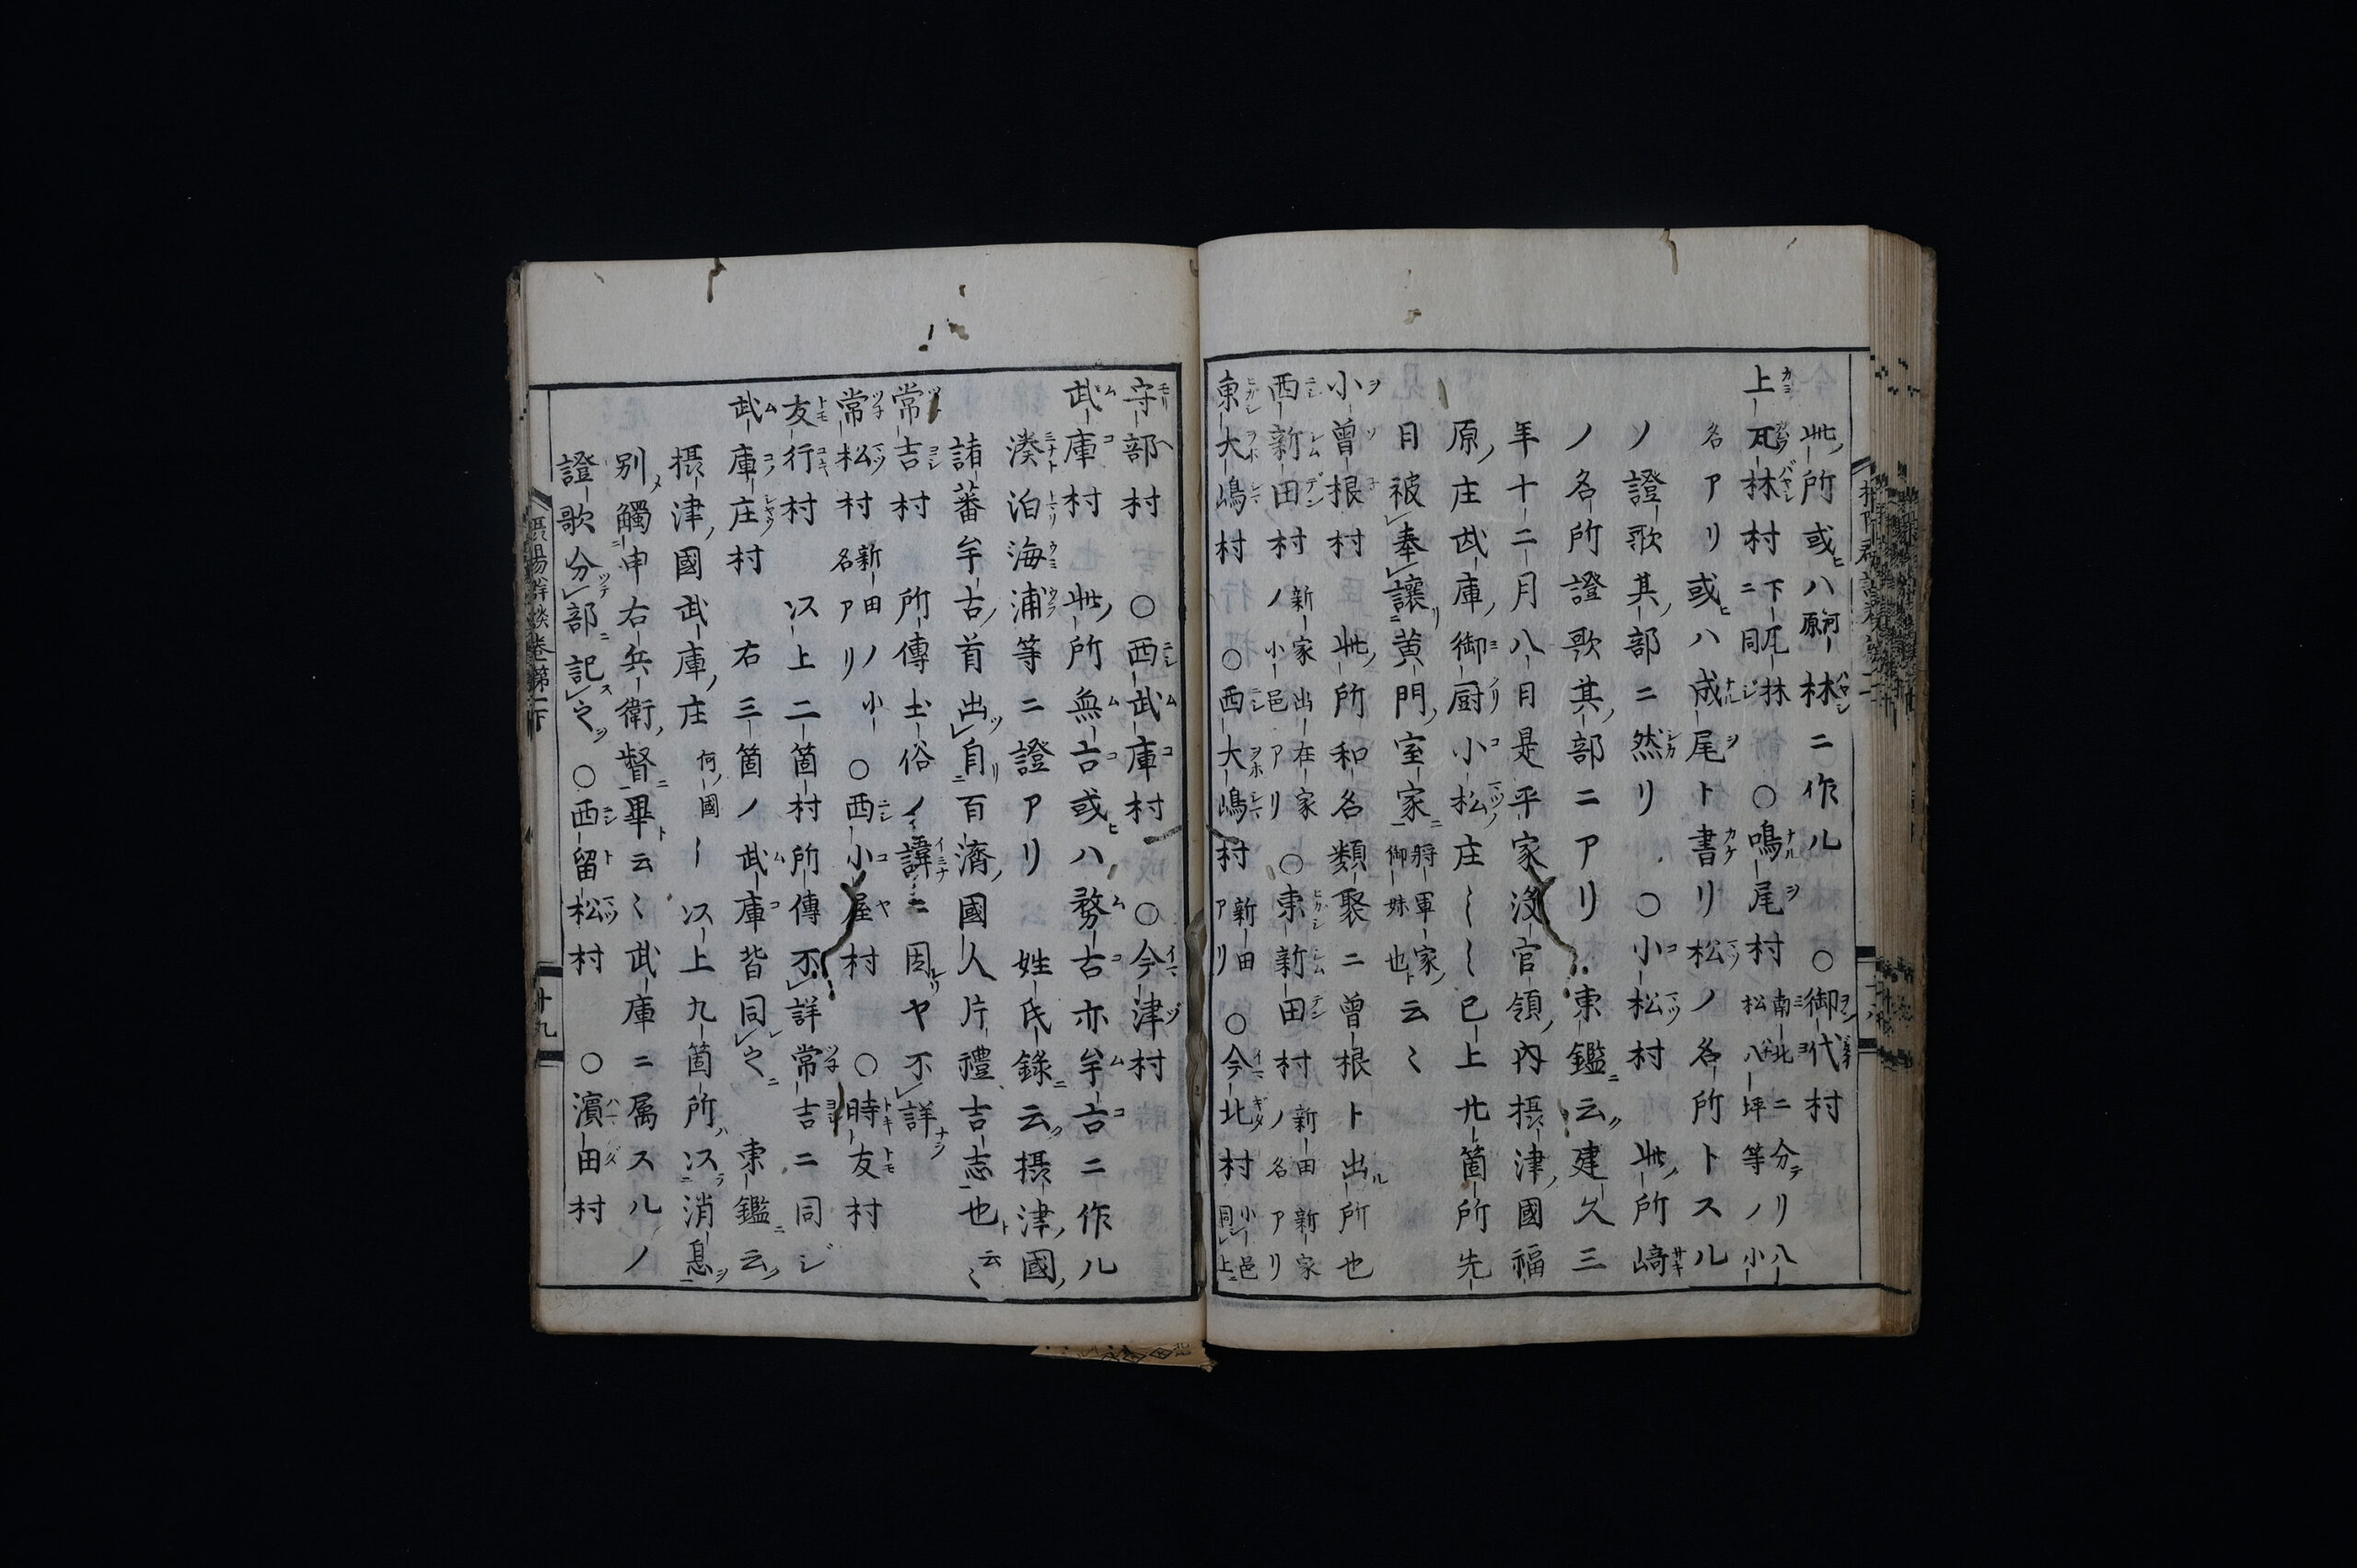 此所或ハ河原林ニ作ル ○御代村
上瓦林村 下瓦林ニ同ジ ○鳴尾村 南北ニ分テリ八松八坪等ノ小
名アリ或ハ成尾ト書リ松ノ名所トスル
ノ證歌其部ニ然リ ○小松村 此所﨑
ノ名所證歌其部ニアリ 東鑑云建久三
年十二月八日是平家没官領内摂津國福
原庄武庫御厨小松庄〻〻已上廿箇所先
日被奉讓黄門室家 将軍家御妹也ト云〻
小曽根村 此所和名類聚ニ曽根ト出所也
西新田村 新家出在家ノ小邑アリ ○東新田村 新田新家ノ名アリ
東大嶋村 ○西大嶋村 新田アリ ○今北村 小邑同上
守部村 ○西武庫村 ○今津村
武庫村 此所無古或ハ務古亦牟古ニ作ル
湊泊海浦等ニ證アリ 姓氏錄云摂津國
諸蕃牟古首出自百濟國人片禮吉志也ト云〻
常吉村 所傳土俗ノ諱ニ因リヤ不詳
常松村 新田ノ小名アリ ○西小屋村 ○時友村
友行村 以上二箇村所傳不詳常吉ニ同ジ
武庫庄村 右三箇ノ武庫皆同之 東鑑云
摂津國武庫庄 何國 以上九箇所以消息
別觸申右兵衛督畢ト云〻武庫ニ属スルノ
證歌分部記之 ○西留松村 ○濱田村
摂陽群談巻第二下
廿九